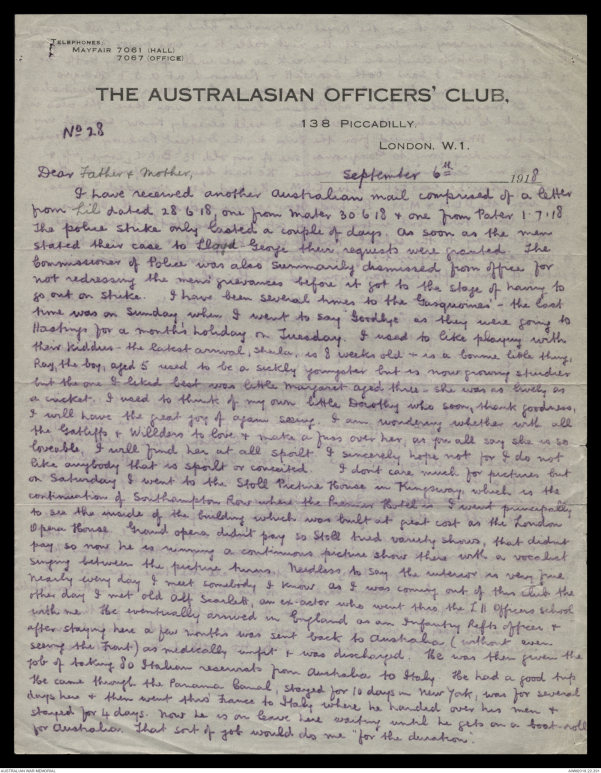 TELEPHONES:
MAYFAIR 7061 (HALL)
7067 (OFFICE)
THE AUSTRALASIAN OFFICERS' CLUB,
138 PICCADILLY.
LONDON, W.1.
No 28
Dear Father & Mother,
September 6th 1918
I have received another Australian mail comprised of a letter
from Lil dated 28.6.18, one from Mater 30.6.18 & one from Pater 1.7.18
The police strike only lasted a couple of days. As soon as the men
stated their case to Lloyd George their requests were granted. The
Commissioner of Police was also summarily dismissed from office for
not redressing the men's grievances before it got to the stage of having to
go out on strike. I have been several times to the Gasquoines - the last
time was on Sunday when I went to say "Goodbye" as they were going to
Hastings for a month's holiday on Tuesday. I used to like playing with
their kiddies - the latest arrival, Sheila, is 8 weeks old - is a bonnie little thing,
Ray, the boy, aged 5 used to be a sickly youngster but is now growing sturdier
but the one I liked best was little Margaret aged three - she was as lively as
a cricket. I used to think of my own little Dorothy who soon, thank goodness,
I will have the great joy of again seeing. I am wondering whether with all
the Gatliffs & Willders to love & make a fuss over her, as you all say she is so
loveable, I will find her at all spoilt. I sincerely hope not for I do not
like anybody that is spoilt or conceited. I don't care much for pictures but
on Saturday I went to the Stoll Picture House in Kingsway, which is the
continuation of Southampton Row where the Premier Hotel is. I went principally
to see the inside of the building which was built at great cost as the London
Opera House. Grand opera didn't pay so Stoll tried variety shows, that didn't
pay so now he is running a continuous picture show there with a vocalist
singing between the picture turns. Needless to say the interior is very fine
nearly every day I meet somebody I know as I was coming out of this club the
other day I met old Alf Scarlett, an ex-actor who went thro the L.H Officers school
with me. He eventually arrived in England as an Infantry Refts officer &
after staying here a few months was sent back to Australia (without even
seeing the Front) as medically unfit & was discharged. He was then given the
job of taking 80 Italian reservists from Australia to Italy. He had a good trip
He came through the Panama Canal, stayed for 10 days in New York, was for several
days here & then went thro' France to Italy where he handed over his men &
stayed for 4 days. Now he is on leave here waiting until he gets on a boat-roll
for Australia. That sort of job would do me "for the duration".
AUSTRALIAN WAR MEMORIAL